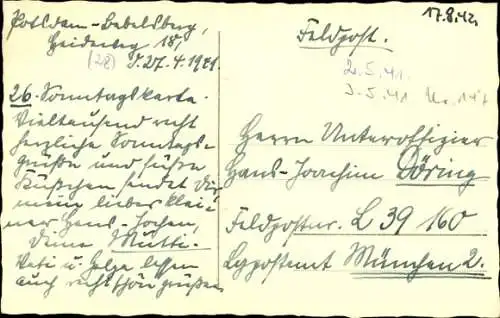 Potsdam-Babelsberg,
Heideweg 18,
(28) d. 27.4.1941
26. Sonntagskarte.
Vieltausend recht
herzliche Sonntags-
grüße und süße
Küßchen sendet Dir
mein lieber klei-
ner Hans-Jochen,
Deine Mutti.
Vati u. Helga lassen
auch recht schön grüßen
17.8.42.
Feldpost.
2.5.41.
3.5.41 No. 147
Herrn Unteroffizier
Hans-Joachim Döring
Feldpostnr. L 39 160
Lgpostamt München 2.